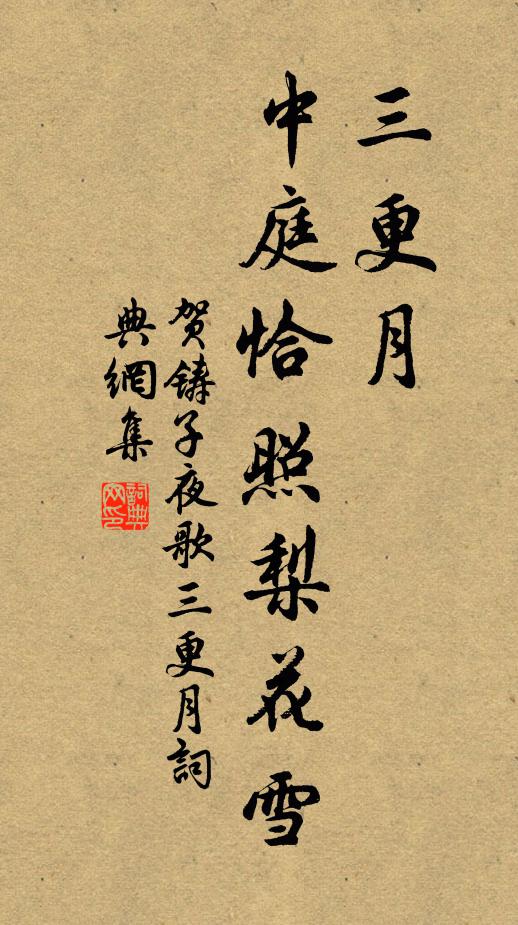 三更月
中庭恰照梨花雪
贺鑄子夜歌三更月詞
典網集
詞典网印